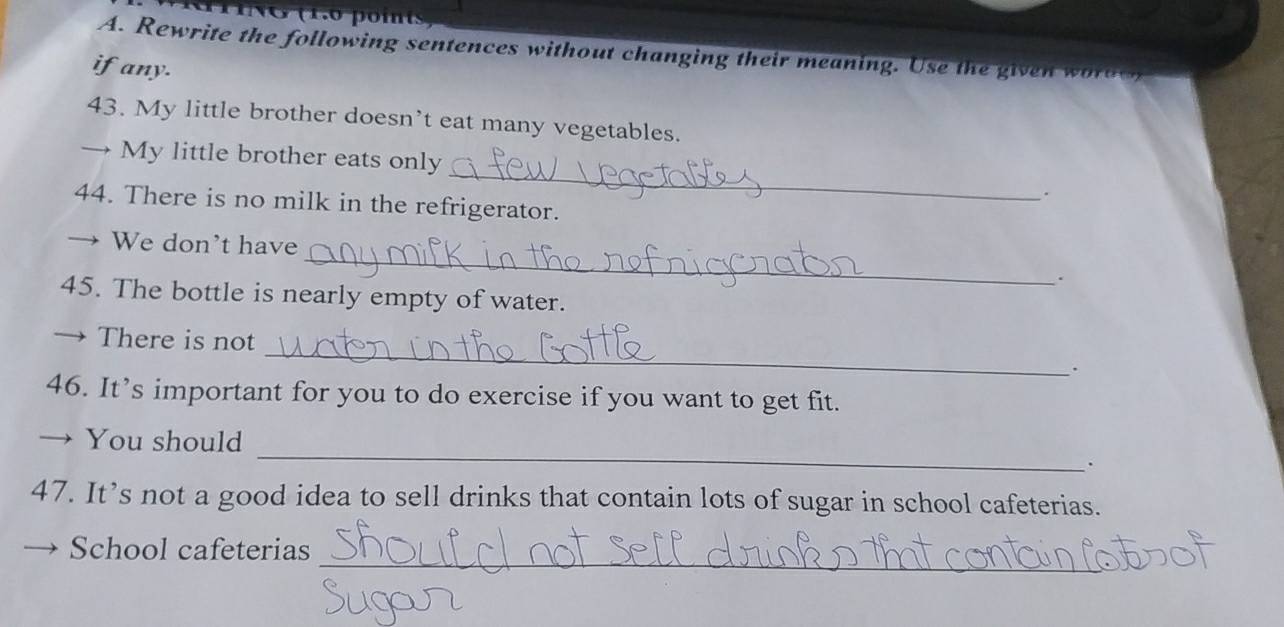 WRITING (1.0 points)
A. Rewrite the following sentences without changing their meaning. Use the given
if any.
43. My little brother doesn't eat many vegetables.
→ My little brother eats only a few vegetables.
44. There is no milk in the refrigerator.
→ We don't have any milk in the refrigerator.
45. The bottle is nearly empty of water.
→ There is not water in the bottle.
46. It's important for you to do exercise if you want to get fit.
→ You should ___.
47. It's not a good idea to sell drinks that contain lots of sugar in school cafeterias.
→ School cafeterias should not sell drinks that contain lots of
sugar